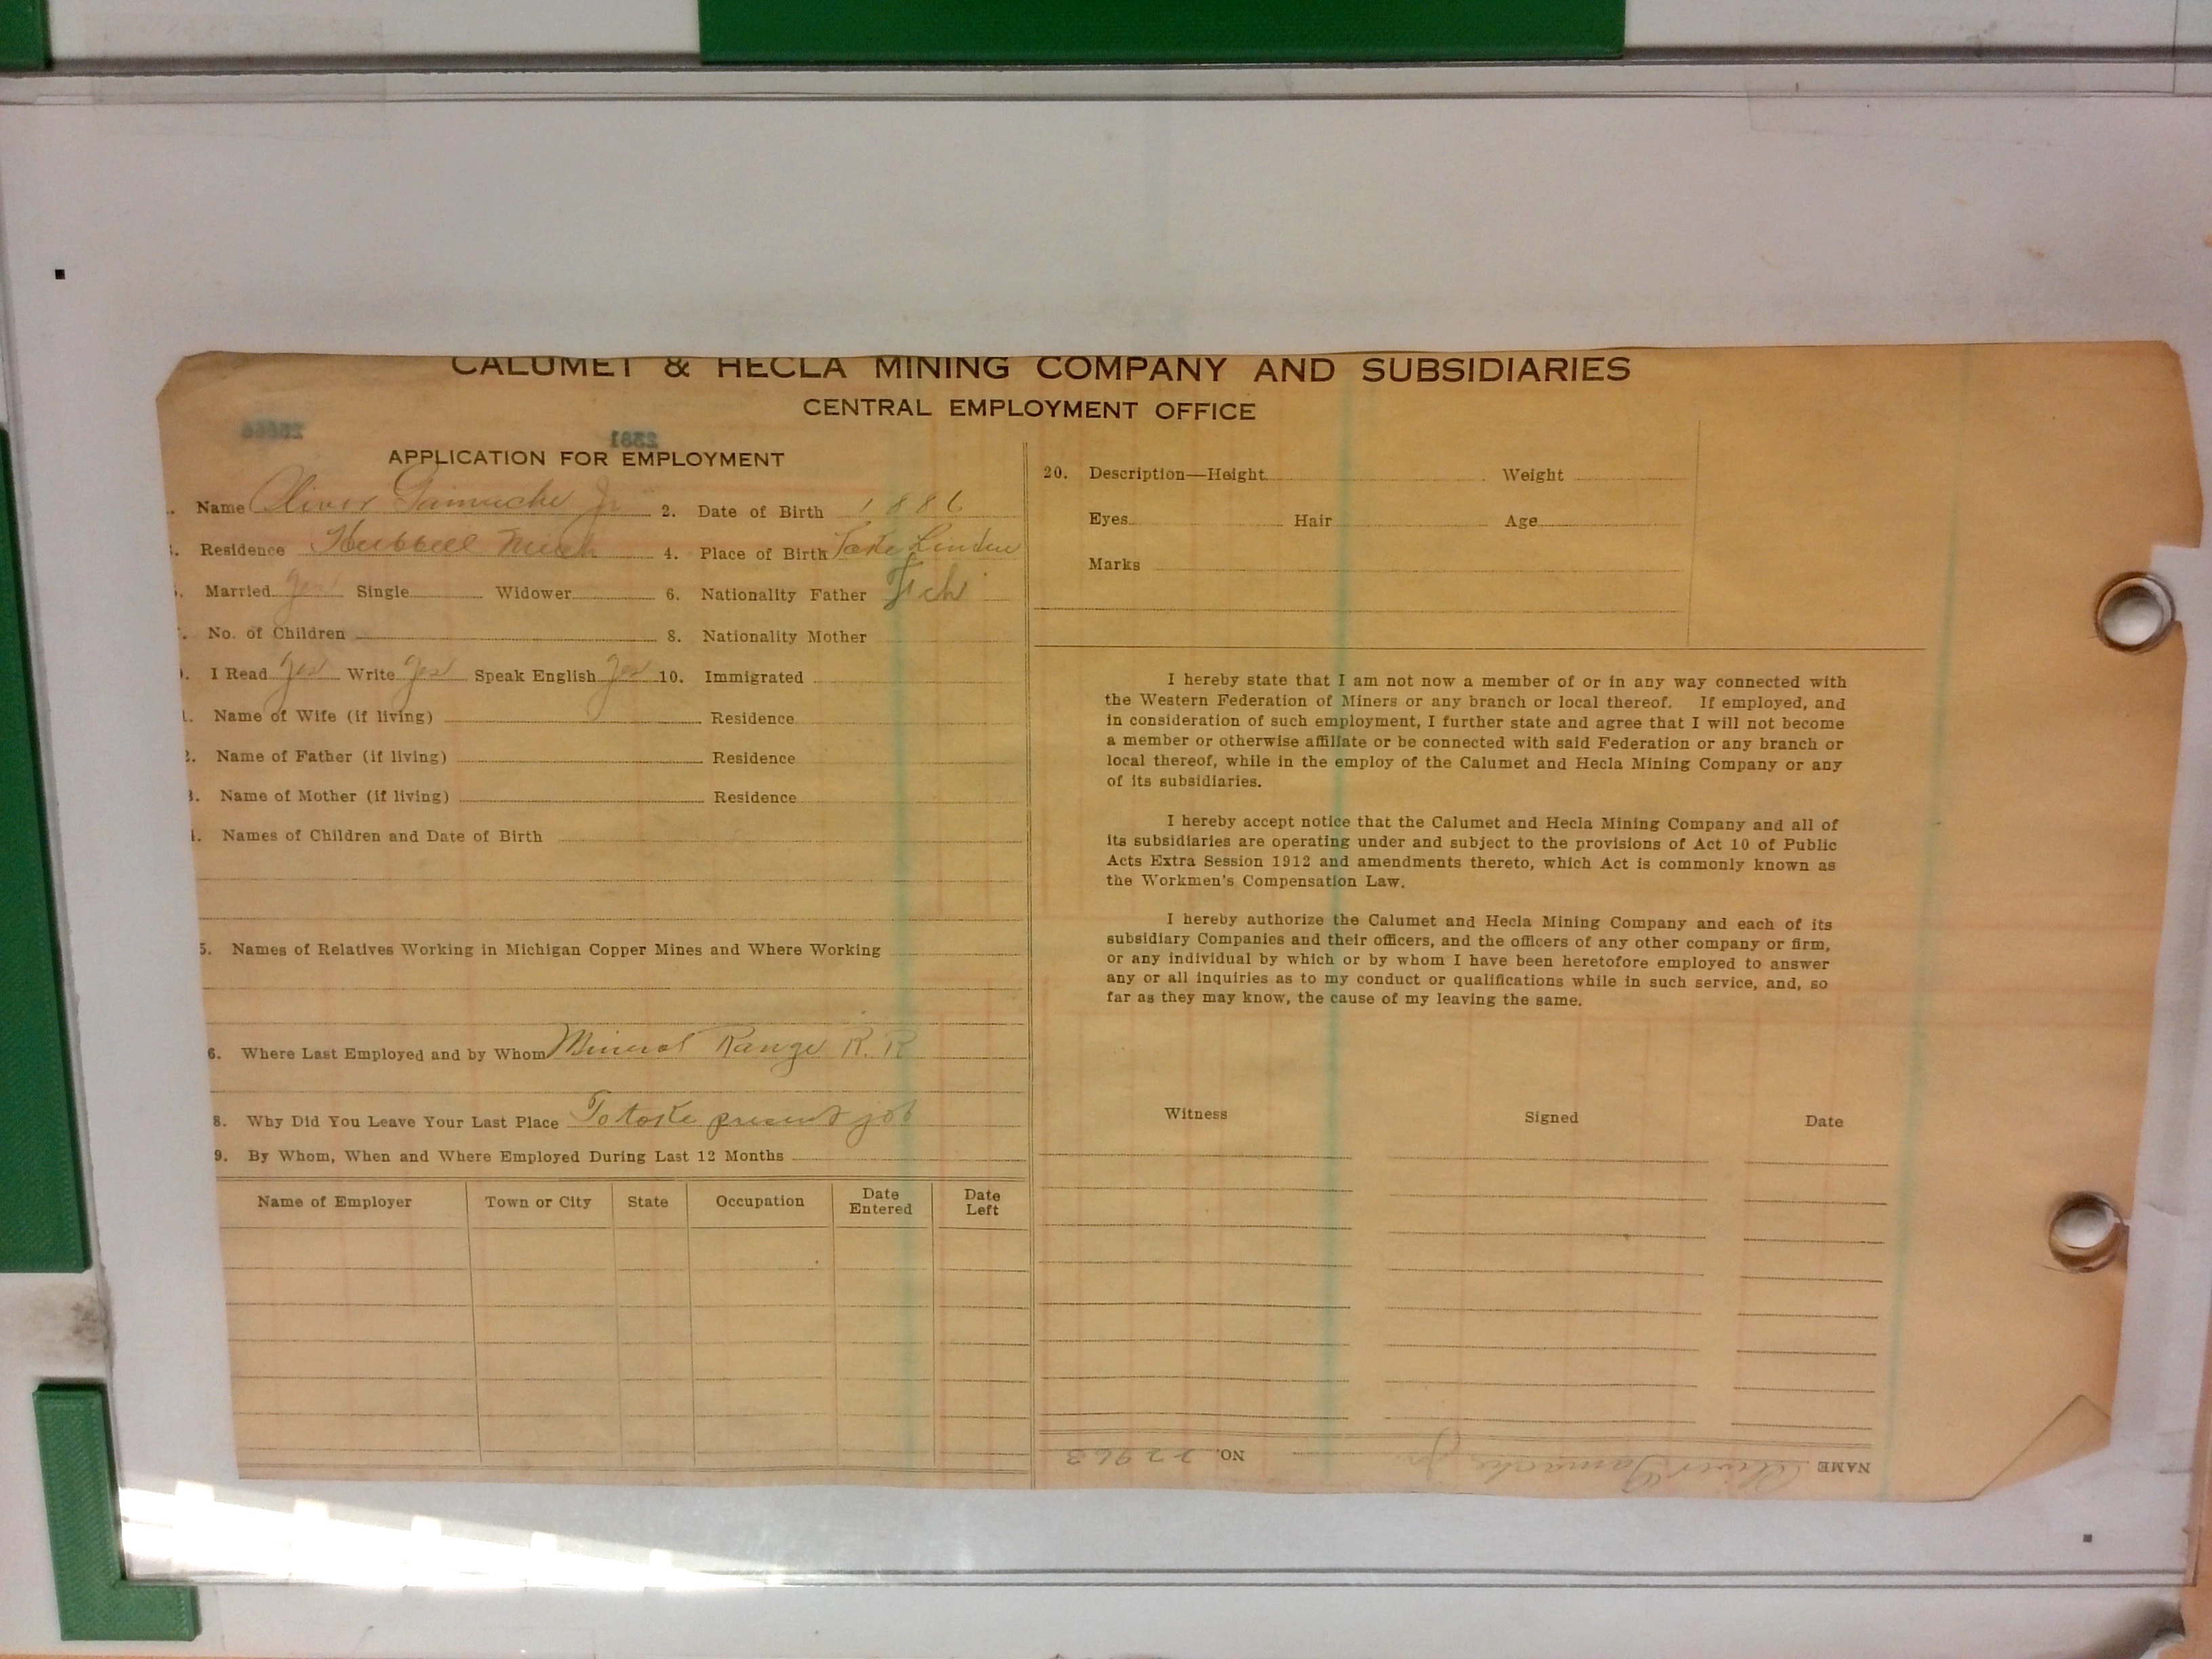 CALUMET & HECLA MINING COMPANY AND SUBSIDIARIES
CENTRAL EMPLOYMENT OFFICE
2381
APPLICATION FOR EMPLOYMENT
Name Oliver Gamache Jr 2. Date of Birth 1886
Residence Hubbell Mich 4. Place of Birth Lake Linden
Married Yes Single Widower 6. Nationality Father Fch
No. of Children 8. Nationality Mother
I Read Yes Write Yes Speak English Yes 10. Immigrated
Name of Wife (if living) Residence
Name of Father (if living) Residence
Name of Mother (if living) Residence
Names of Children and Date of Birth
5. Names of Relatives Working in Michigan Copper Mines and Where Working
6. Where Last Employed and by Whom Mineral Range R. R
8. Why Did You Leave Your Last Place To take present job
9. By Whom, When and Where Employed During Last 12 Months
Name of Employer Town or City State Occupation Date Entered Date Left
20. Description—Height Weight
Eyes Hair Age
Marks
I hereby state that I am not now a member of or in any way connected with
the Western Federation of Miners or any branch or local thereof. If employed, and
in consideration of such employment, I further state and agree that I will not become
a member or otherwise affiliate or be connected with said Federation or any branch or
local thereof, while in the employ of the Calumet and Hecla Mining Company or any
of its subsidiaries.
I hereby accept notice that the Calumet and Hecla Mining Company and all of
its subsidiaries are operating under and subject to the provisions of Act 10 of Public
Acts Extra Session 1912 and amendments thereto, which Act is commonly known as
the Workmen's Compensation Law.
I hereby authorize the Calumet and Hecla Mining Company and each of its
subsidiary Companies and their officers, and the officers of any other company or firm,
or any individual by which or by whom I have been heretofore employed to answer
any or all inquiries as to my conduct or qualifications while in such service, and, so
far as they may know, the cause of my leaving the same.
Witness Signed Date
NAME Oliver Gamache Jr NO. 22963